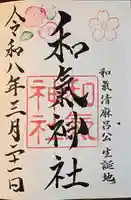 和氣清麻呂公 生誕地
和氣神社
和氣神社
令和八年二月二十一日